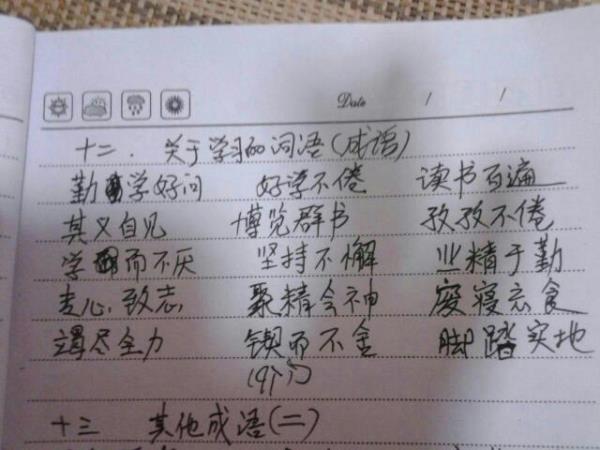 Date / /
十二. 关于学习的词语(成语)
勤学好问 好学不倦 读书百遍
其义自见 博览群书 孜孜不倦
学而不厌 坚持不懈 业精于勤
专心致志 聚精会神 废寝忘食
竭尽全力 锲而不舍 脚踏实地
十三 其他成语(二)